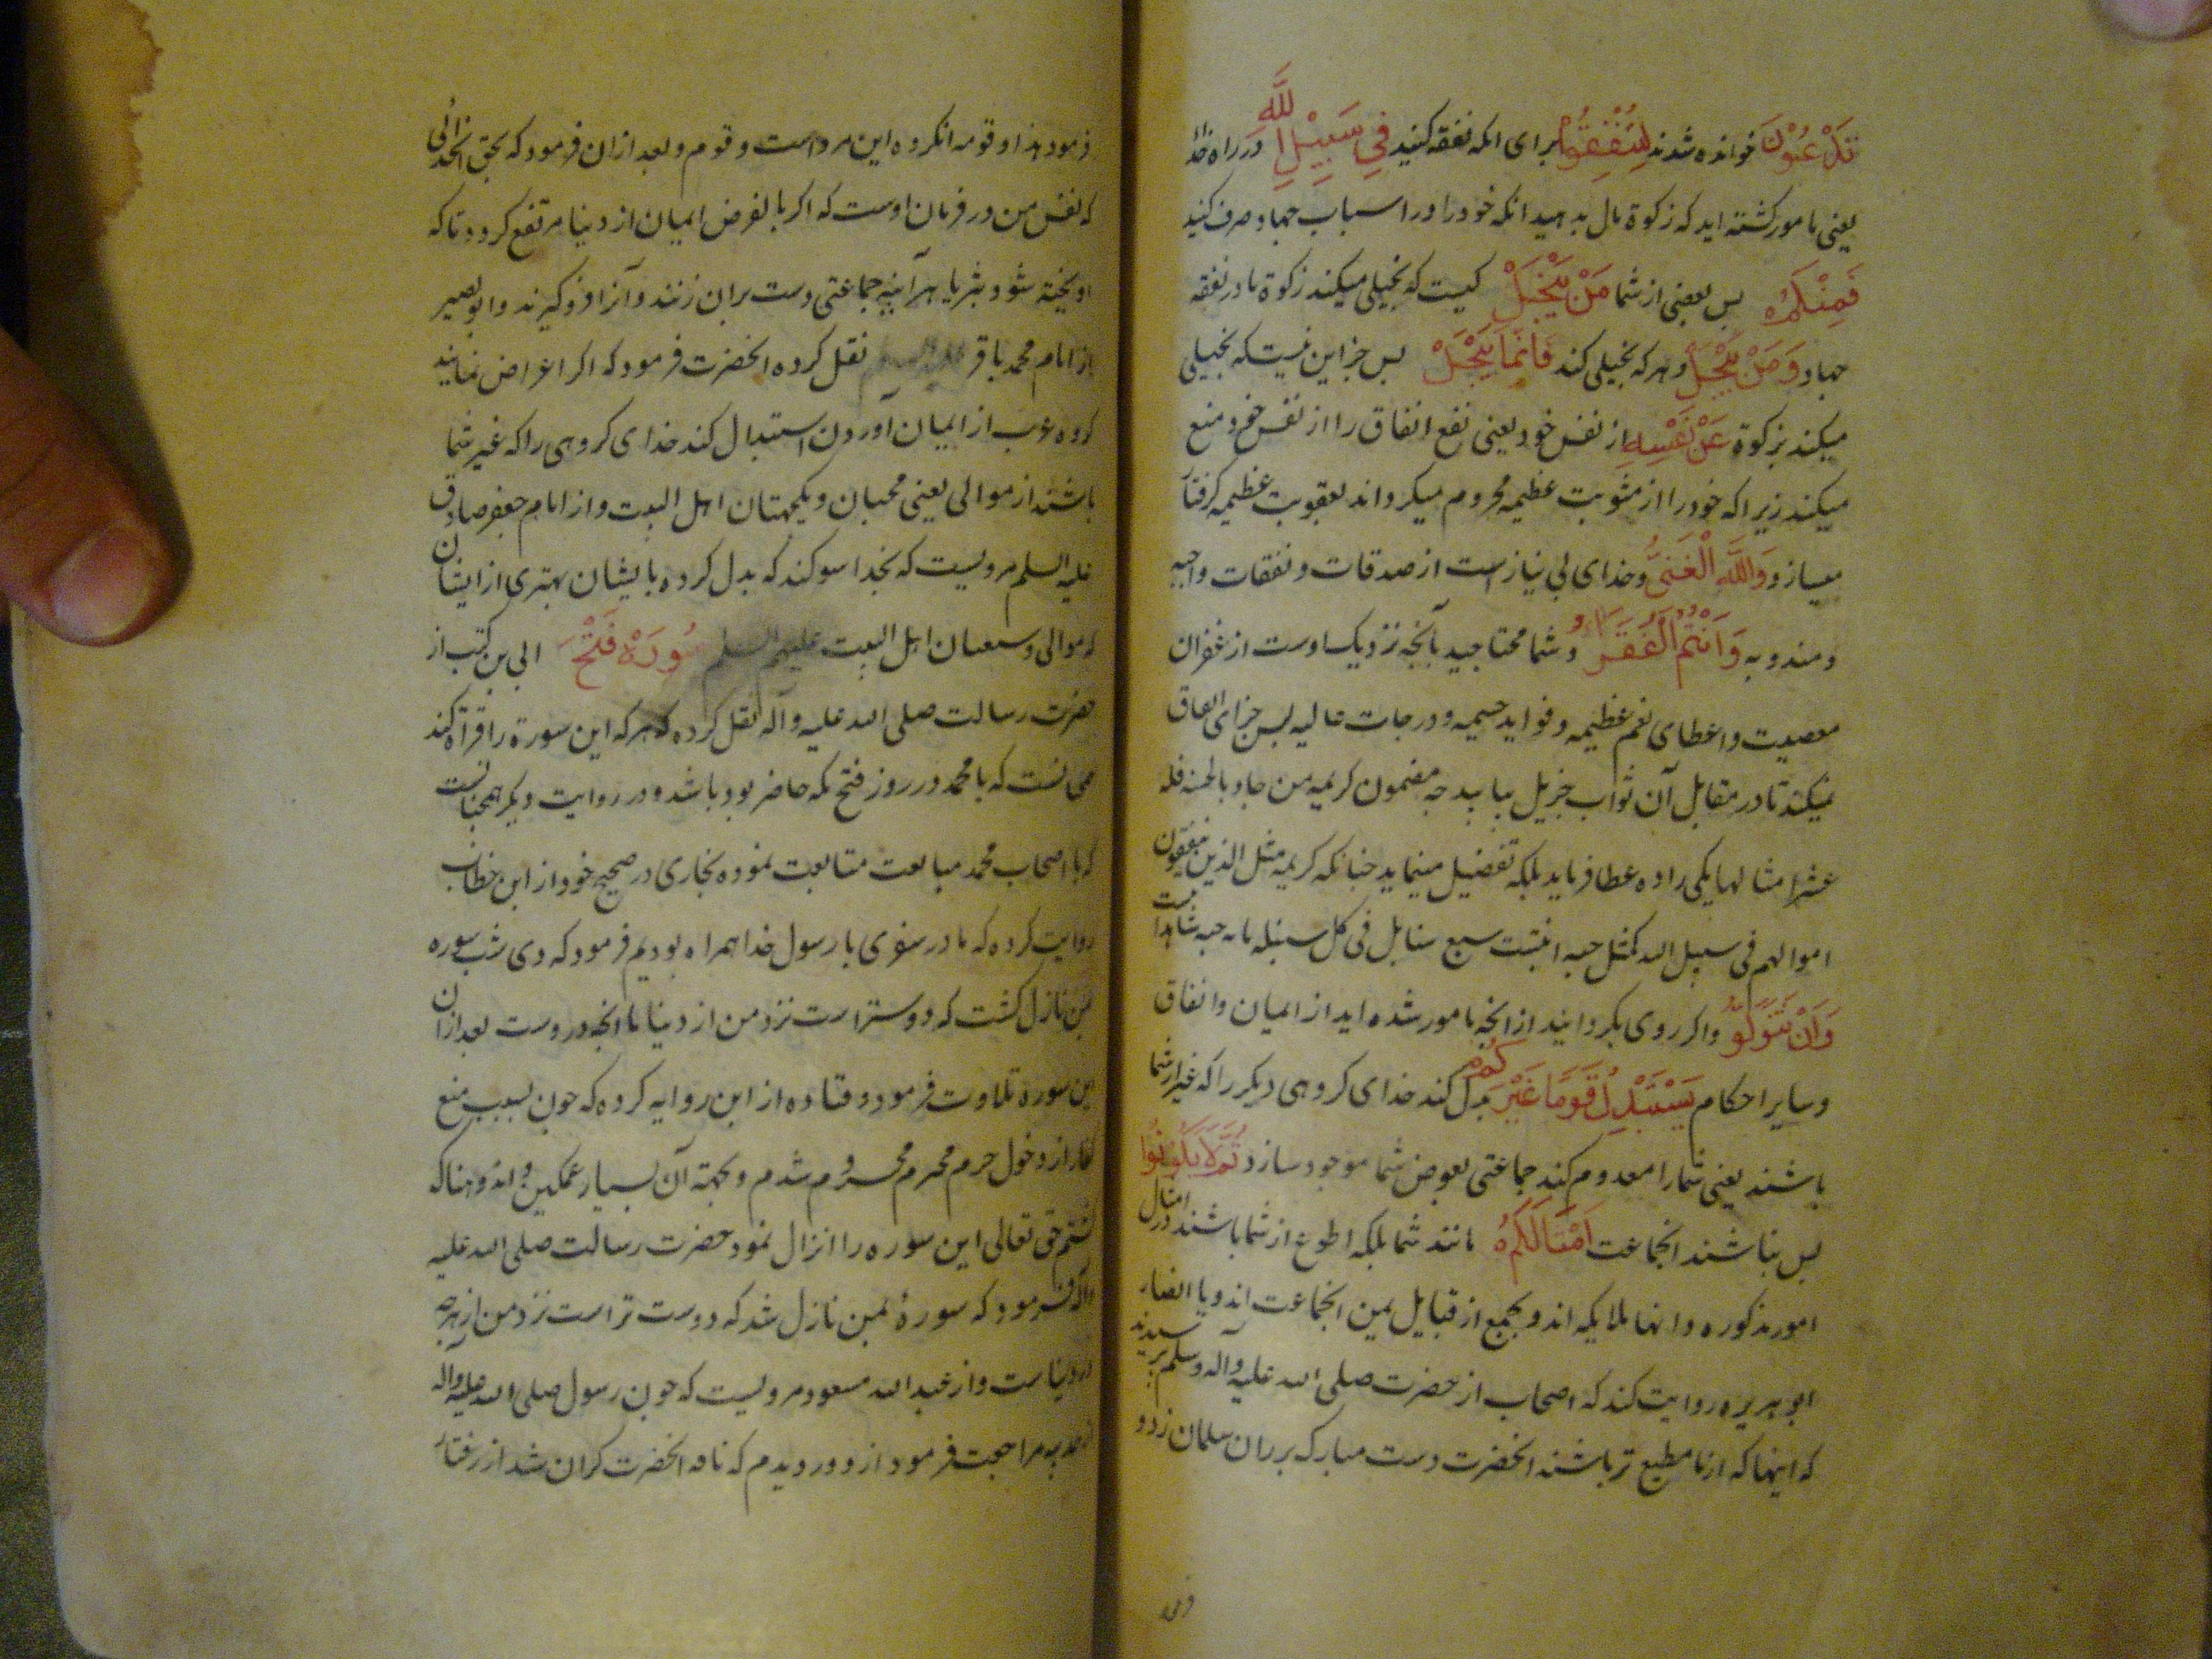 تَدْعُوْنَ خوانده شدند لِتُنْفِقُوْا برای انکه نفقه کنید فِي سَبِيْلِ اللَّهِ در راه خدا
یعنی مامور کشته اید که زکوة مال بدهید انکه خود را در اسباب جهاد صرف کنید
فَمِنْكُمْ پس بعضی از شما مَنْ يَبْخَلْ کیست که بخیلی میکند زکوة یا در نفقه
جهاد وَ مَنْ يَبْخَلْ و هر که بخیلی کند فَانَّمَا يَبْخَلْ پس جز این نیست که بخیلی
میکند بزکوة عَنْ نَفْسِهِ از نفس خود یعنی نفع انفاق را از نفس خود منع
میکند زیرا که خود را از مثوبت عظیمه محروم میکرداند بعقوبت عظیمه کرفتار
میسازد وَاللَّهِ الْغَنِىُّ و خدای بی نیاز است از صدقات و نفقات واجبه
و مندوبه وَاَنْتُمُ الْفُقَرَاءُ و شما محتاجید بآنچه نزدیک اوست از غفران
معصیت و اعطای نعم عظیمه و فواید جسیمه و درجات عالیه پس جزای انفاق
میکند تا در مقابل آن ثواب جزیل بیابد چه مضمون کریمه من جاء بالحسنه فله
عشر امثالها یکی را ده عطا فرماید بلکه تفضیل مینماید چنانکه کریمه مثل الذین ینفقون
اموالهم فی سبیل الله کمثل حبه انبتت سبع سنابل فی کل سنبله مایه حبه شاهد است
وَاَنْ تَتَوَلَّوْ و اکر روی بکردانید از انچه مامور شده اید از ایمان و انفاق
و سایر احکام يَسْتَبْدِلْ قَوْمًا غَيْرَكُمْ بدل کند خدای کروهی دیکر را که غیر از شما
باشند یعنی شما را معدوم کند جماعتی بعوض شما موجود سازد ثُمَّ لَا يَكُوْنُوْا
پس نباشند انجماعت اَمْثَالَكُمْ مانند شما بلکه اطوع از شما باشند در امتثال
امور مذکوره و انها ملایکه اند و بجمع از قبایل یمن انجماعت اند و یا انصار
ابو هریره روایت کند که اصحاب از حضرت صلی الله علیه وآله وسلم پرسیدند
که اینها که از ما مطیع تر باشند انحضرت دست مبارک بر ران سلمان زد و
فرمود هذا و قومه انکروه این مرد است و قوم و بعد از ان فرمود که بحق انخدائی
که نفس من در فرمان اوست که اکر بالفرض ایمان از دنیا مرتفع کردد تا که
اویخته شود بثریا هر آینه جماعتی دست بران زنند و آنرا فرو کیرند و ابو بصیر
از امام محمد باقر نقل کرده انحضرت فرمود که اکر اعراض نمایند
کروه عرب از ایمان آوردن استبدال کند خدای کروهی را که غیر شما
باشند از موالی یعنی محبان و یکجهتان اهل البیت و از امام جعفر صادق
علیه السلم مرویست که بخدا سوکند که بدل کرده بایشان بهتری از ایشان
از موالی و شیعیان اهل البیت علیهم السلم سُورَةْ فَتْحْ ابی بن کعب از
حضرت رسالت صلی الله علیه و آله نقل کرده که هر که این سورة را قراة کند
همچنانست که با محمد در روز فتح مکه حاضر بود باشد و در روایت دیکر همچنانست
که با اصحاب محمد مبایعت متابعت نموده بخاری در صحیح خود از ابن خطاب
روایت کرده که ما در سفری با رسول خدا همراه بودیم فرمود که دی شب سوره
بمن نازل کشت که دوستر است نزد من از دنیا با انچه دروست بعد از ان
این سوره تلاوت فرمود و قتاده از انس روایه کرده که چون بسبب منع
کفار از دخول حرم محترم محروم شدم و بجهة آن بسیار غمکین و اندوهناک
کشتم حق تعالی این سوره را انزال نمود حضرت رسالت صلی الله علیه
وآله فرمود که سورۀ بمن نازل شد که دوست تر است نزد من از هر چه
در دنیاست و از عبد الله مسعود مرویست که چون رسول صلی الله علیه وآله
از حدیبیه مراجعت فرمود از دور دیدم که ناقه انحضرت کران شد از رفتار